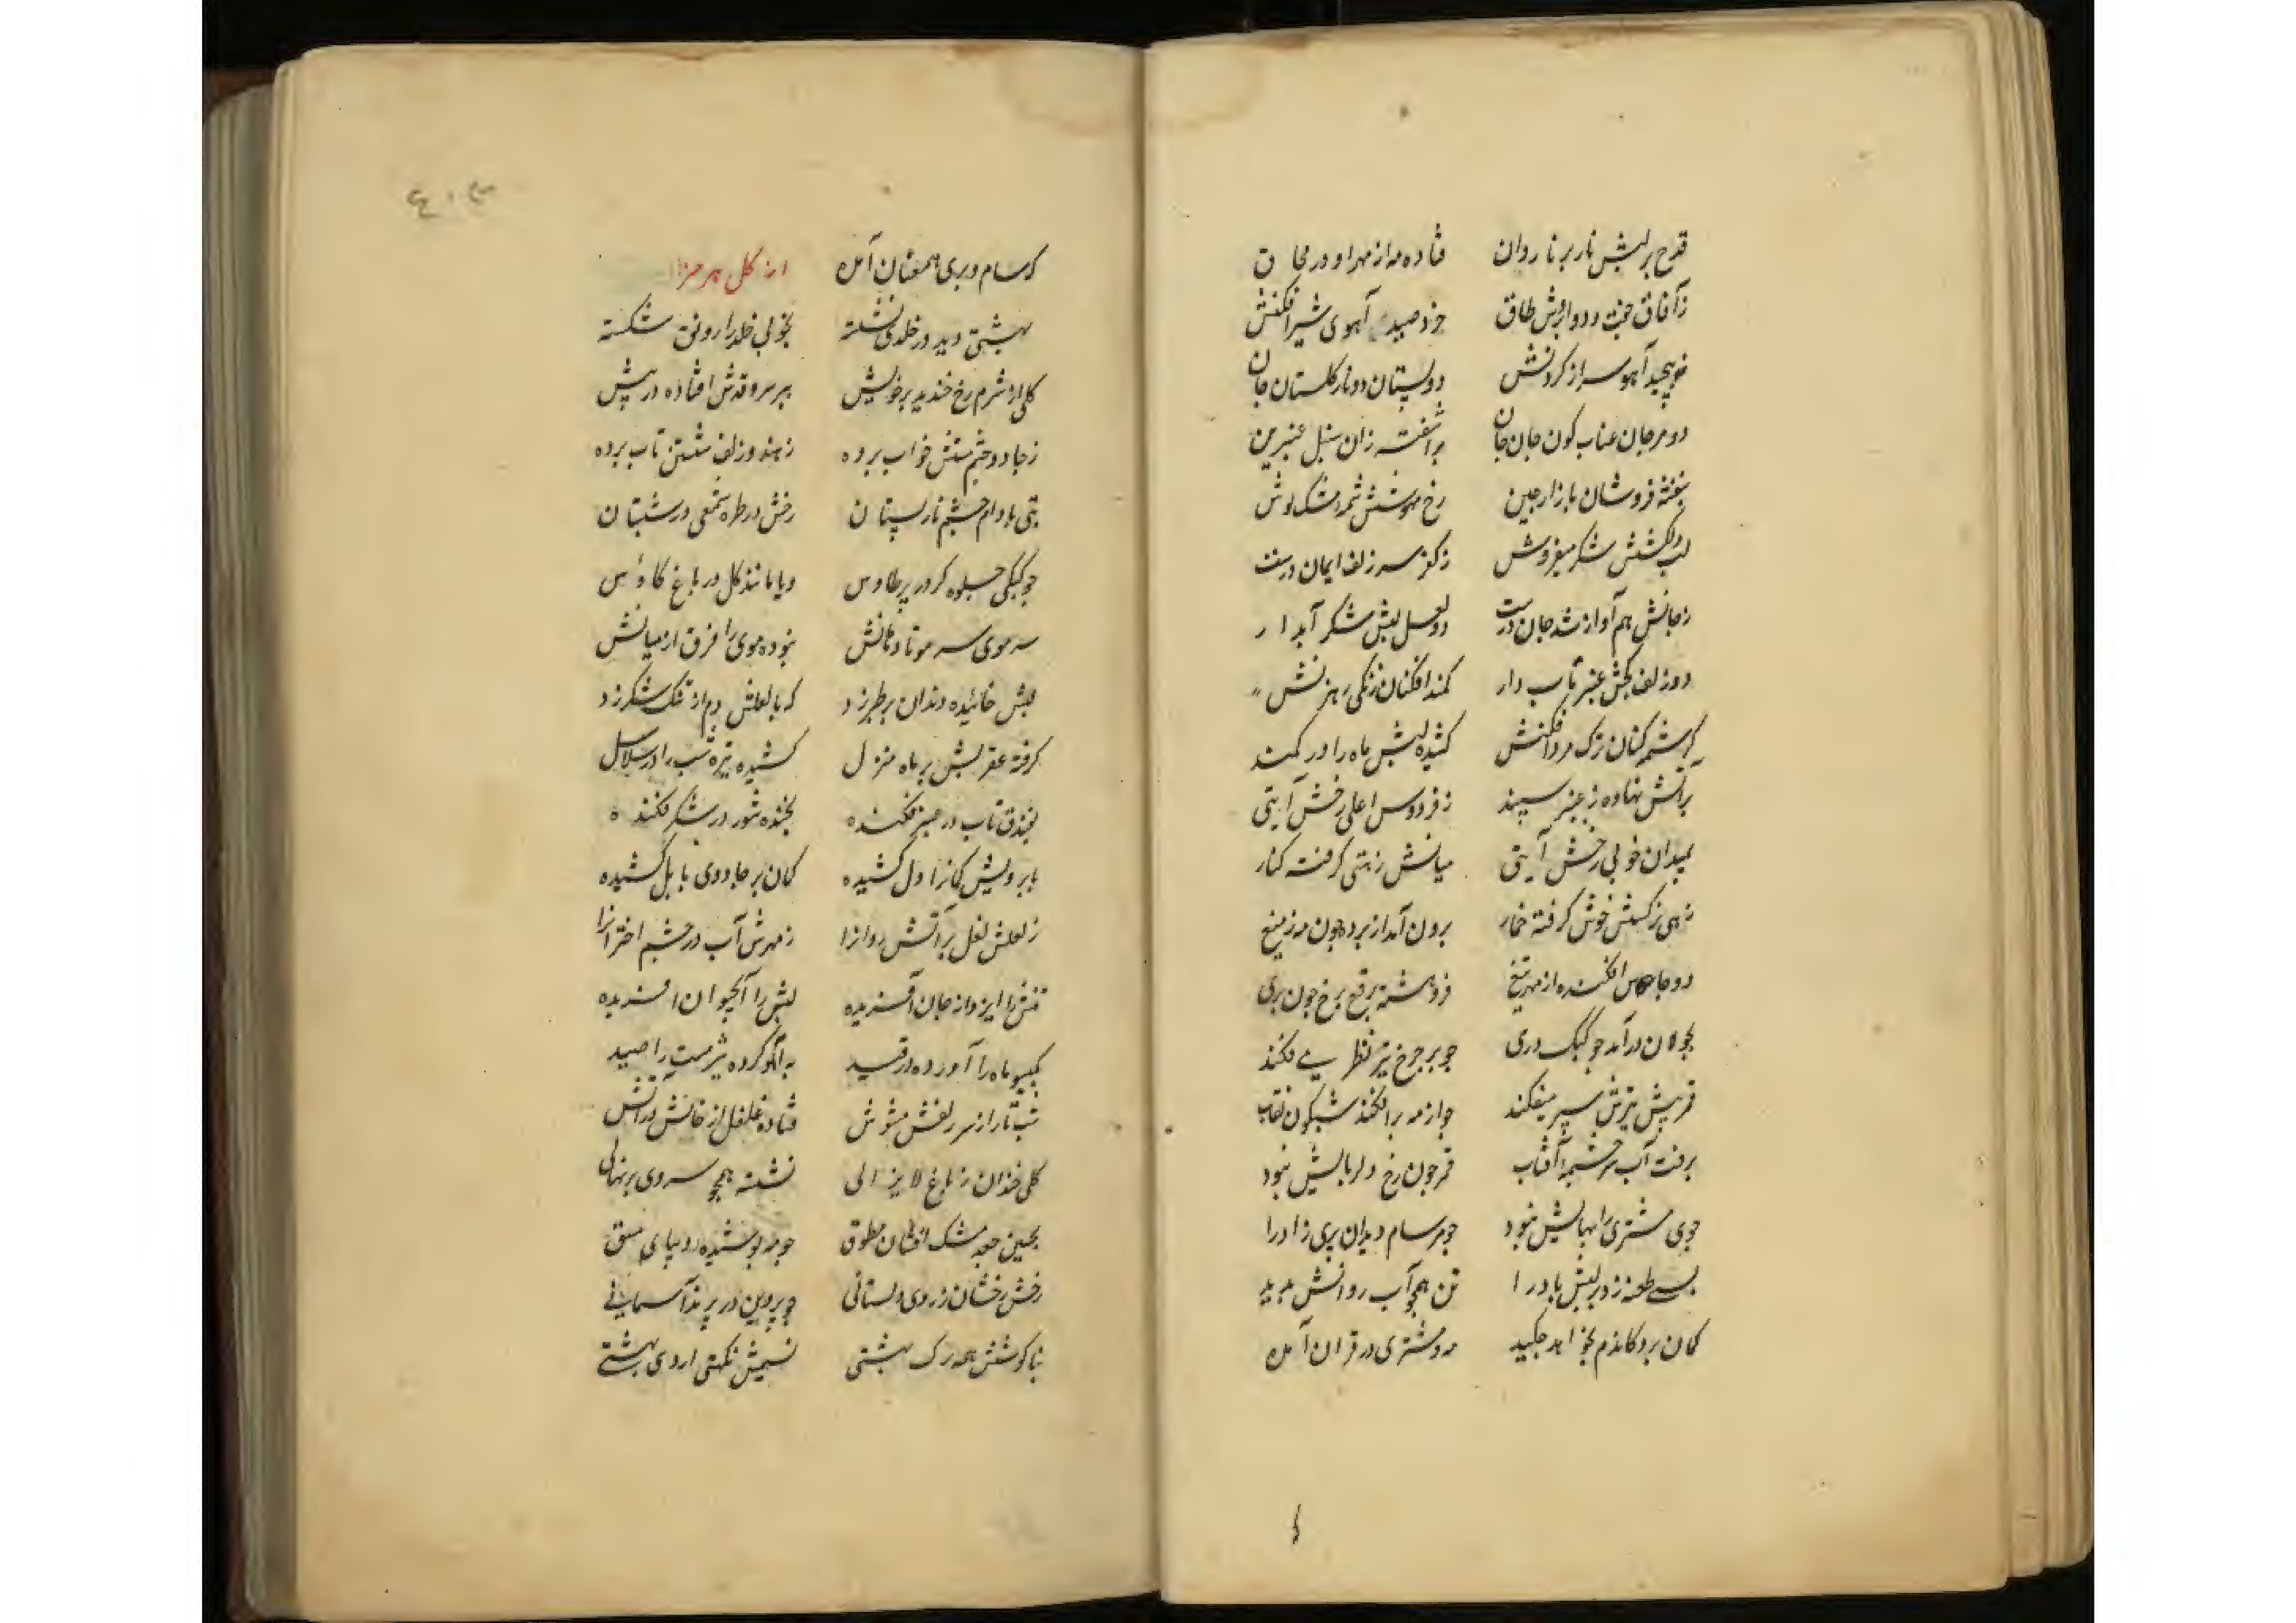 قدح بر لبش نار بر نار وان
فتاده مه از مهر او در محاق
ز آفاق جفت دو ابروش طاق
خود صید آهوی شیر افکنش
نپیچید آهو سر از گردنش
دو پستان دو نار گلستان جان
دو مرجان عناب گون جان جان
بر آشفته زان سنبل عنبرین
بنفشه فروشان بازار چین
رخ مهوشش
لب دلکشش شکر میفروش
ز کفر سر زلف ایمان درست
ز جانش هم آواز شد جان درست
دو لعل لبش شکر آبدار
دو زلف کجش عنبر تاب دار
کمند افکنان زنگی رهزنش
کرشمه کنان ترک مرد افکنش
کشیده لبش ماه را در کمند
بر آتش نهاده ز عنبر سپند
ز فردوس اعلی رخش آیتی
بمیدان خوبی رخش آیتی
میانش ز هستی گرفته کنار
زهی نرگسش خوش گرفته خمار
برون آمد از پرده چون مه ز میغ
دو جا افکنده از مهر تیغ
فرو هشته برقع برخ چون پری
بجولان در آمد چو کبک دری
چو بر چرخ تیر نظر می فکند
قمر پیش تیرش سپر میفکند
چو از مه بر افکند شبگون نقاب
برفت آب سرچشمه آفتاب
قمر چون رخ دلربایش نبود
جوی مشتری را بهایش نبود
چو مر سام دید آن پری زاد را
بسی طعنه زد بر لبش باد را
تن همچو آب روانش بدید
کمان برد کاندم بخواهد چکید
مه و مشتری در قران آمده
که سام و پری همعنان آمده
بهشتی دید در خلدی نشسته
بخوبی خلد را رونق شکسته
گلی از شرم رخ خندید بر خویش
بر سرو قدش افتاده در پیش
ز جادو چشم مستش خواب برده
ز هندو زلف مشکین تاب برده
بتی بادام چشم نار پستان
رخش در طره شمعی در شبستان
چو کبکی جلوه گر در پر طاوس
و یا مانند گل در باغ کاوس
سر موی سر مو تا دهانش
نبوده موی را فرق از میانش
لبش خائیده دندان بر طبرزد
که با لعلش دم از تنگ شکر زد
گرفته عقربش بر ماه منزل
کشیده تیره شب را در سلاسل
بفندق تاب در عنبر فکنده
بخنده شور در شکر فکنده
بابرویش کمانرا دل کشیده
کمان بر جادوی بابل کشیده
ز لعلش لعل بر آتش روانرا
ز مهرش آب در چشم اخترانرا
تنش را ایزد از جان آفریده
لبش را آب حیوان آفریده
بگیسو ماه را آورده در قید
به آهو کرده شیر مست را صید
شب تار از سر زلفش مشوش
فتاده فلفل از خالش در آتش
گلی خندان ز باغ لایزالی
نشسته همچو سروی بر نهالی
بچین جعد مشک افشان مطوق
چو مه پوشیده دیبای
رخش رخشان ز روی دلستانی
چو پروین در پرند آسمانی
بناگوشش همه رشک بهشتی
نسیمش نکهتی اردی بهشتی